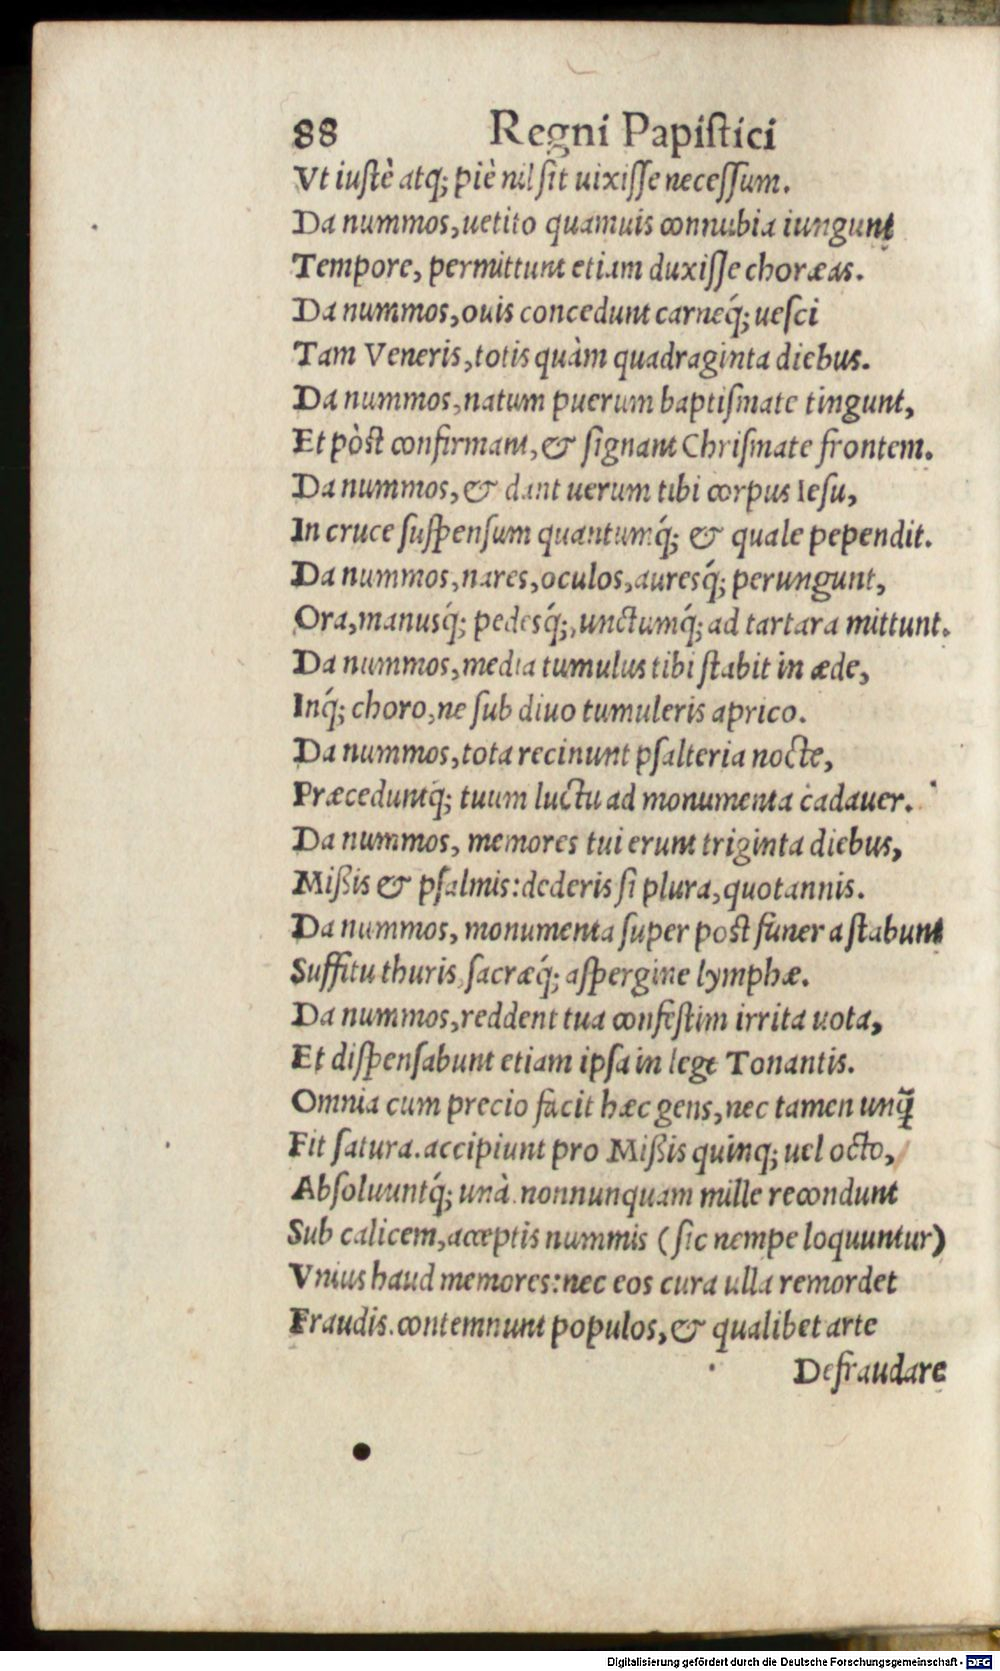 88 Regni Papiſtici
Vt iuſtè atq; piè nil ſit uixiſſe neceſſum.
Da nummos, uetito quamuis connubia iungunt
Tempore, permittunt etiam duxiſſe choræas.
Da nummos, ouis concedunt carneq́; ueſci
Tam Veneris, totis quàm quadraginta diebus.
Da nummos, natum puerum baptiſmate tingunt,
Et pòſt confirmant, & ſignant Chriſmate frontem.
Da nummos, & dant uerum tibi corpus Ieſu,
In cruce ſuſpenſum quantumq́; & quale pependit.
Da nummos, nares, oculos, auresq́; perungunt,
Ora, manusq́; pedesq́;, unctumq́; ad tartara mittunt.
Da nummos, media tumulus tibi ſtabit in æde,
Inq́; choro, ne ſub diuo tumuleris aprico.
Da nummos, tota recinunt pſalteria nocte,
Præceduntq́; tuum luctu ad monumenta cadauer.
Da nummos, memores tui erunt triginta diebus,
Mißis & pſalmis: dederis ſi plura, quotannis.
Da nummos, monumenta ſuper poſt funera ſtabunt
Suffitu thuris, ſacræq́; aſpergine lymphæ.
Da nummos, reddent tua confeſtim irrita uota,
Et diſpenſabunt etiam ipſa in lege Tonantis.
Omnia cum precio facit hæc gens, nec tamen unq̃
Fit ſatura. accipiunt pro Mißis quinq; uel octo,
Abſoluuntq́; unà. nonnunquam mille recondunt
Sub calicem, acceptis nummis (ſic nempe loquuntur)
Vnius haud memores: nec eos cura ulla remordet
Fraudis. contemnunt populos, & qualibet arte
Defraudare
Digitalisierung gefördert durch die Deutsche Forschungsgemeinschaft - DFG